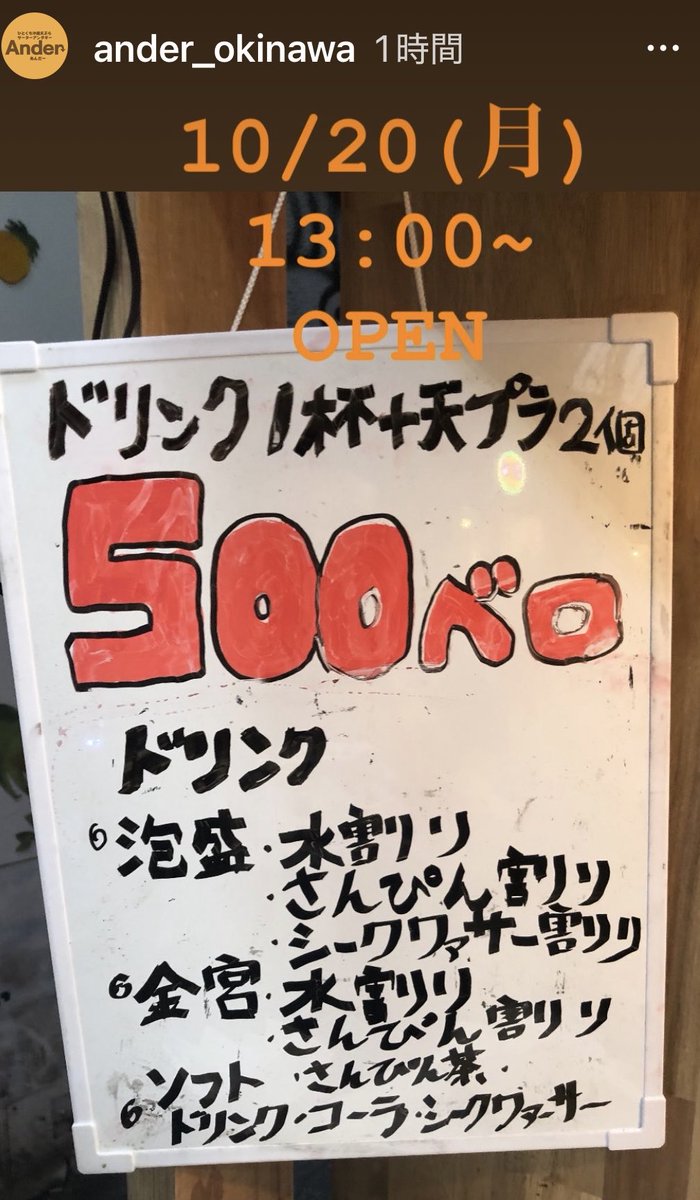 ひとくち沖縄天ぷら
サーターアンダギー
Ander
あんだー
ander_okinawa 1時間
10/20(月)
13:00~
OPEN
ドリンク1杯+天プラ2個
500ベロ
ドリンク
泡盛・水割り
・さんぴん割り
・シークヮーサー割り
金宮・水割り
・さんぴん割り
ソフト ・さんぴん茶
ドリンク・コーラ・シークヮーサー